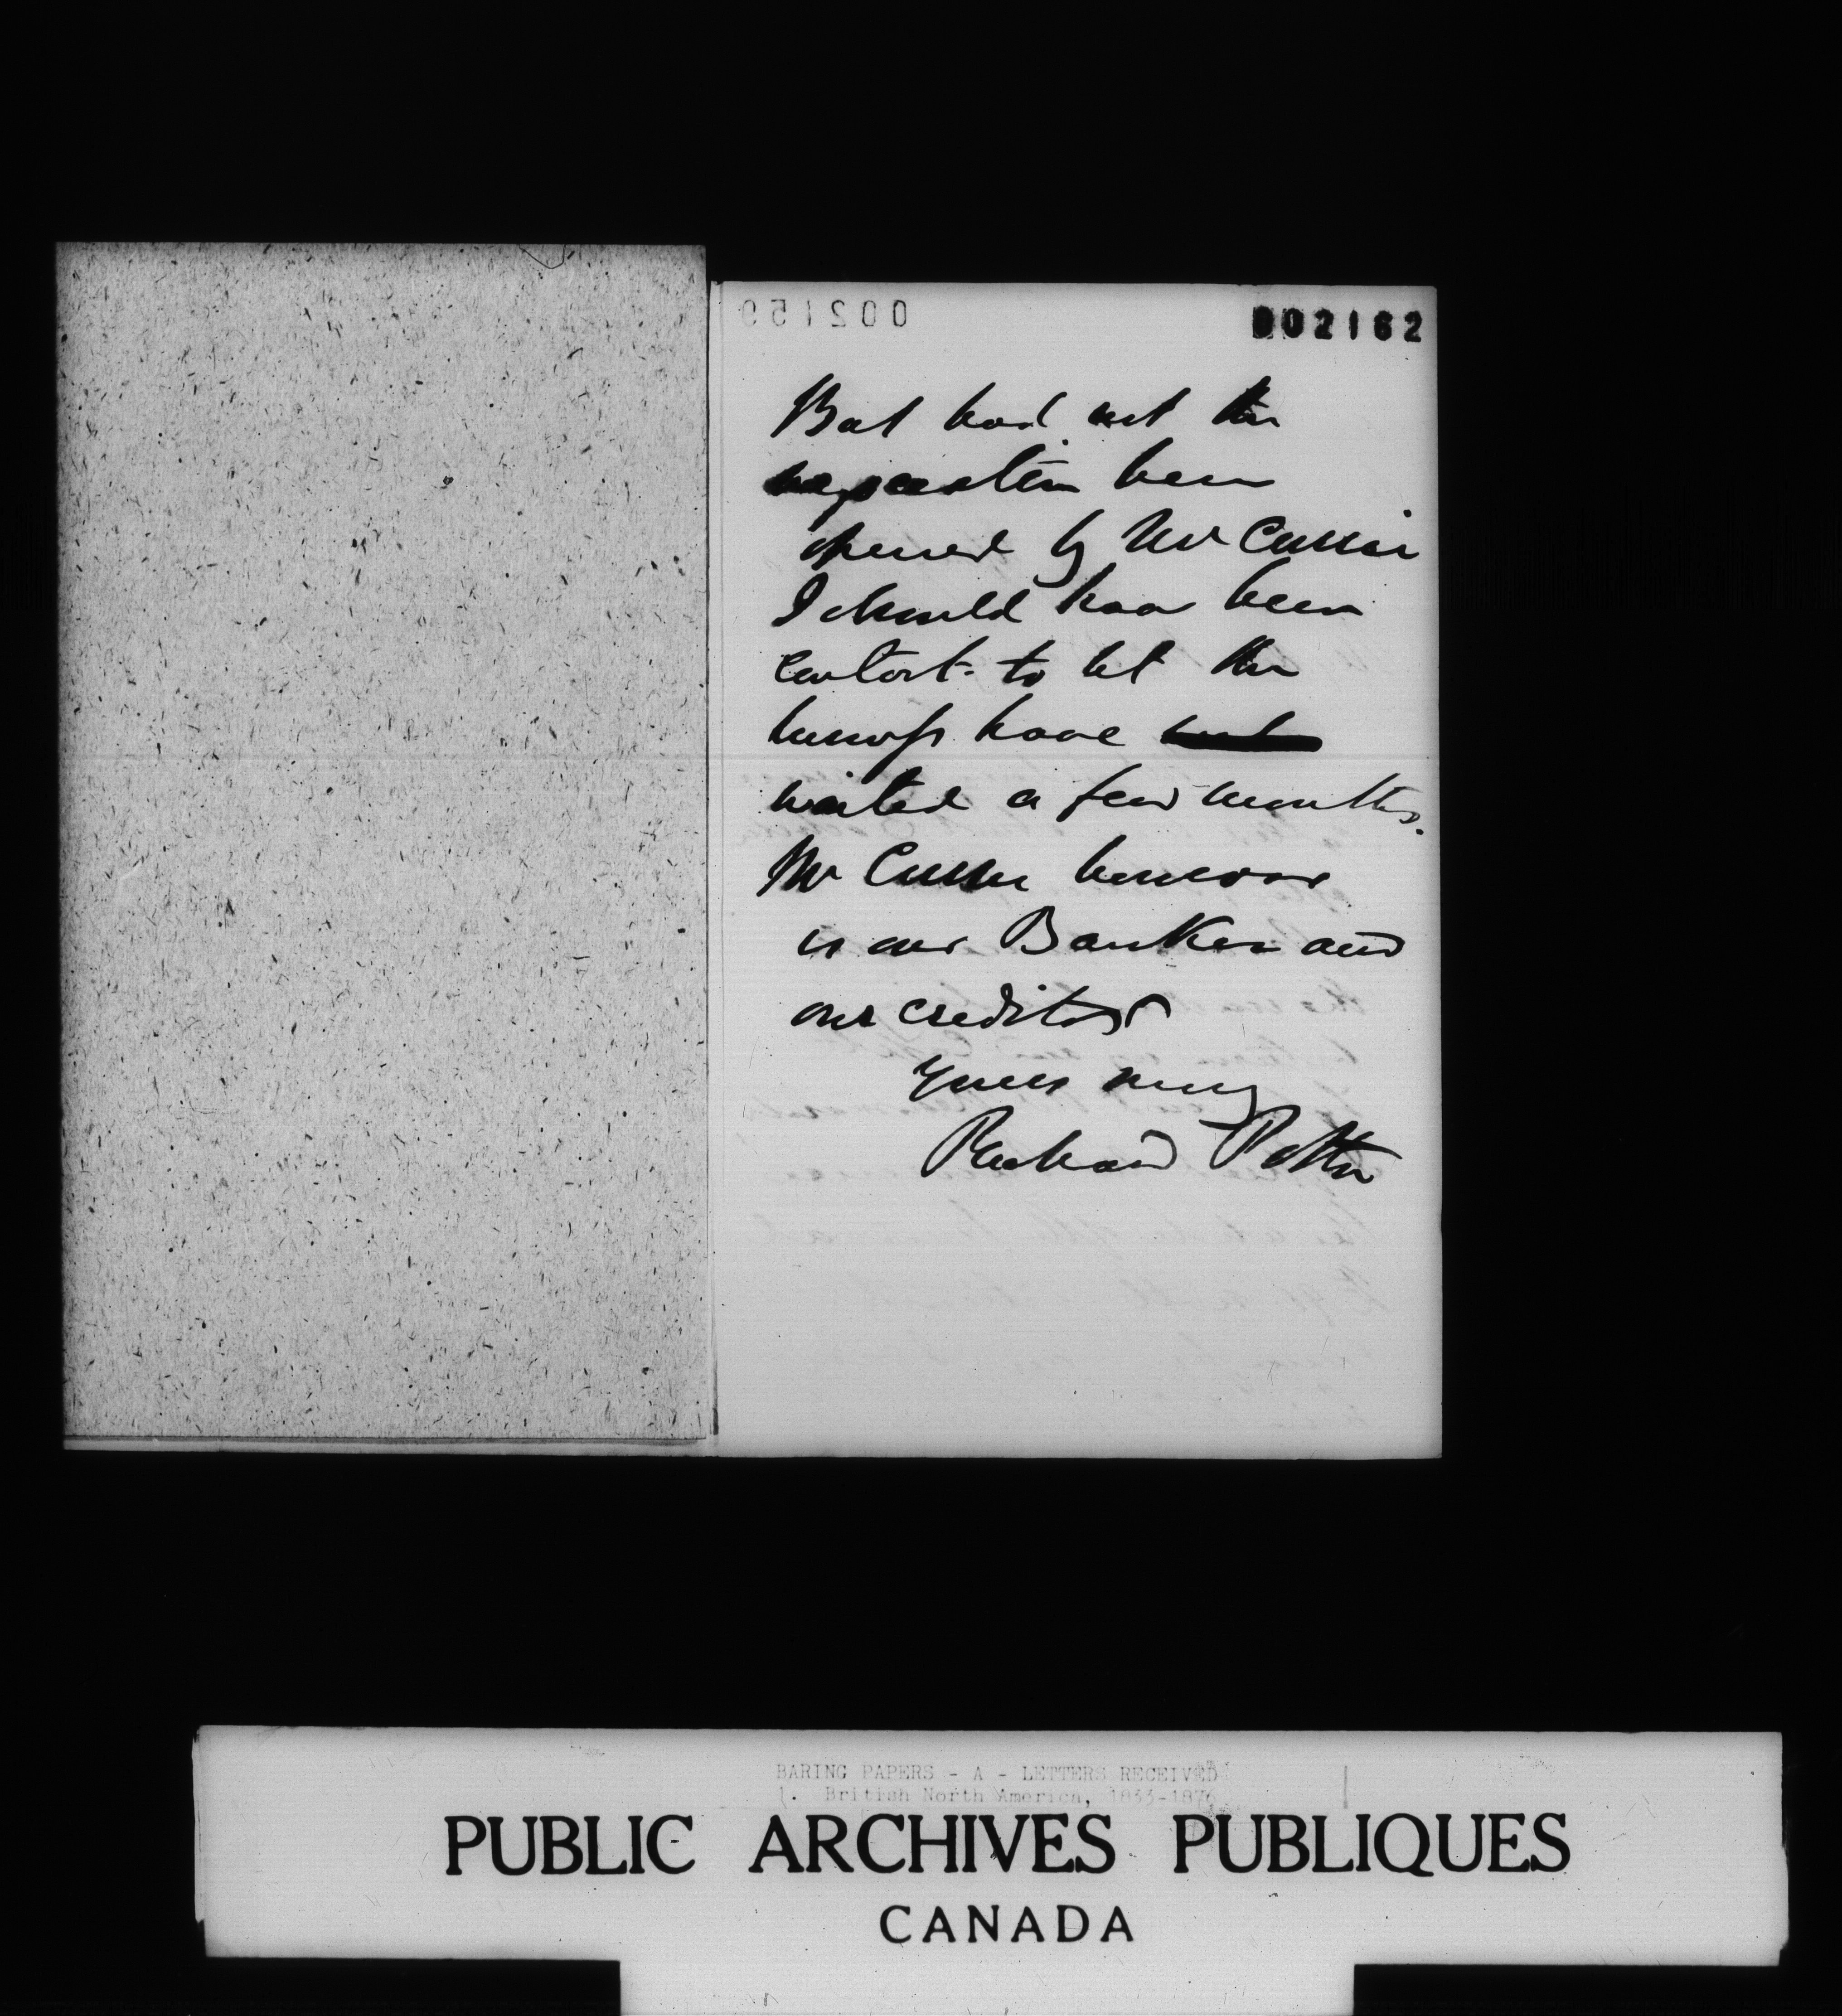 002159
002162
But had not the
negociation been
opened by Mr Cassie
I should have been
content to let the
business have
waited a few months.
Mr however
is our Banker and
our creditor
Yours truly
Richard Potter
BARING PAPERS - A - LETTERS RECEIVED
1. British North America, 1833-1876
PUBLIC ARCHIVES PUBLIQUES
CANADA